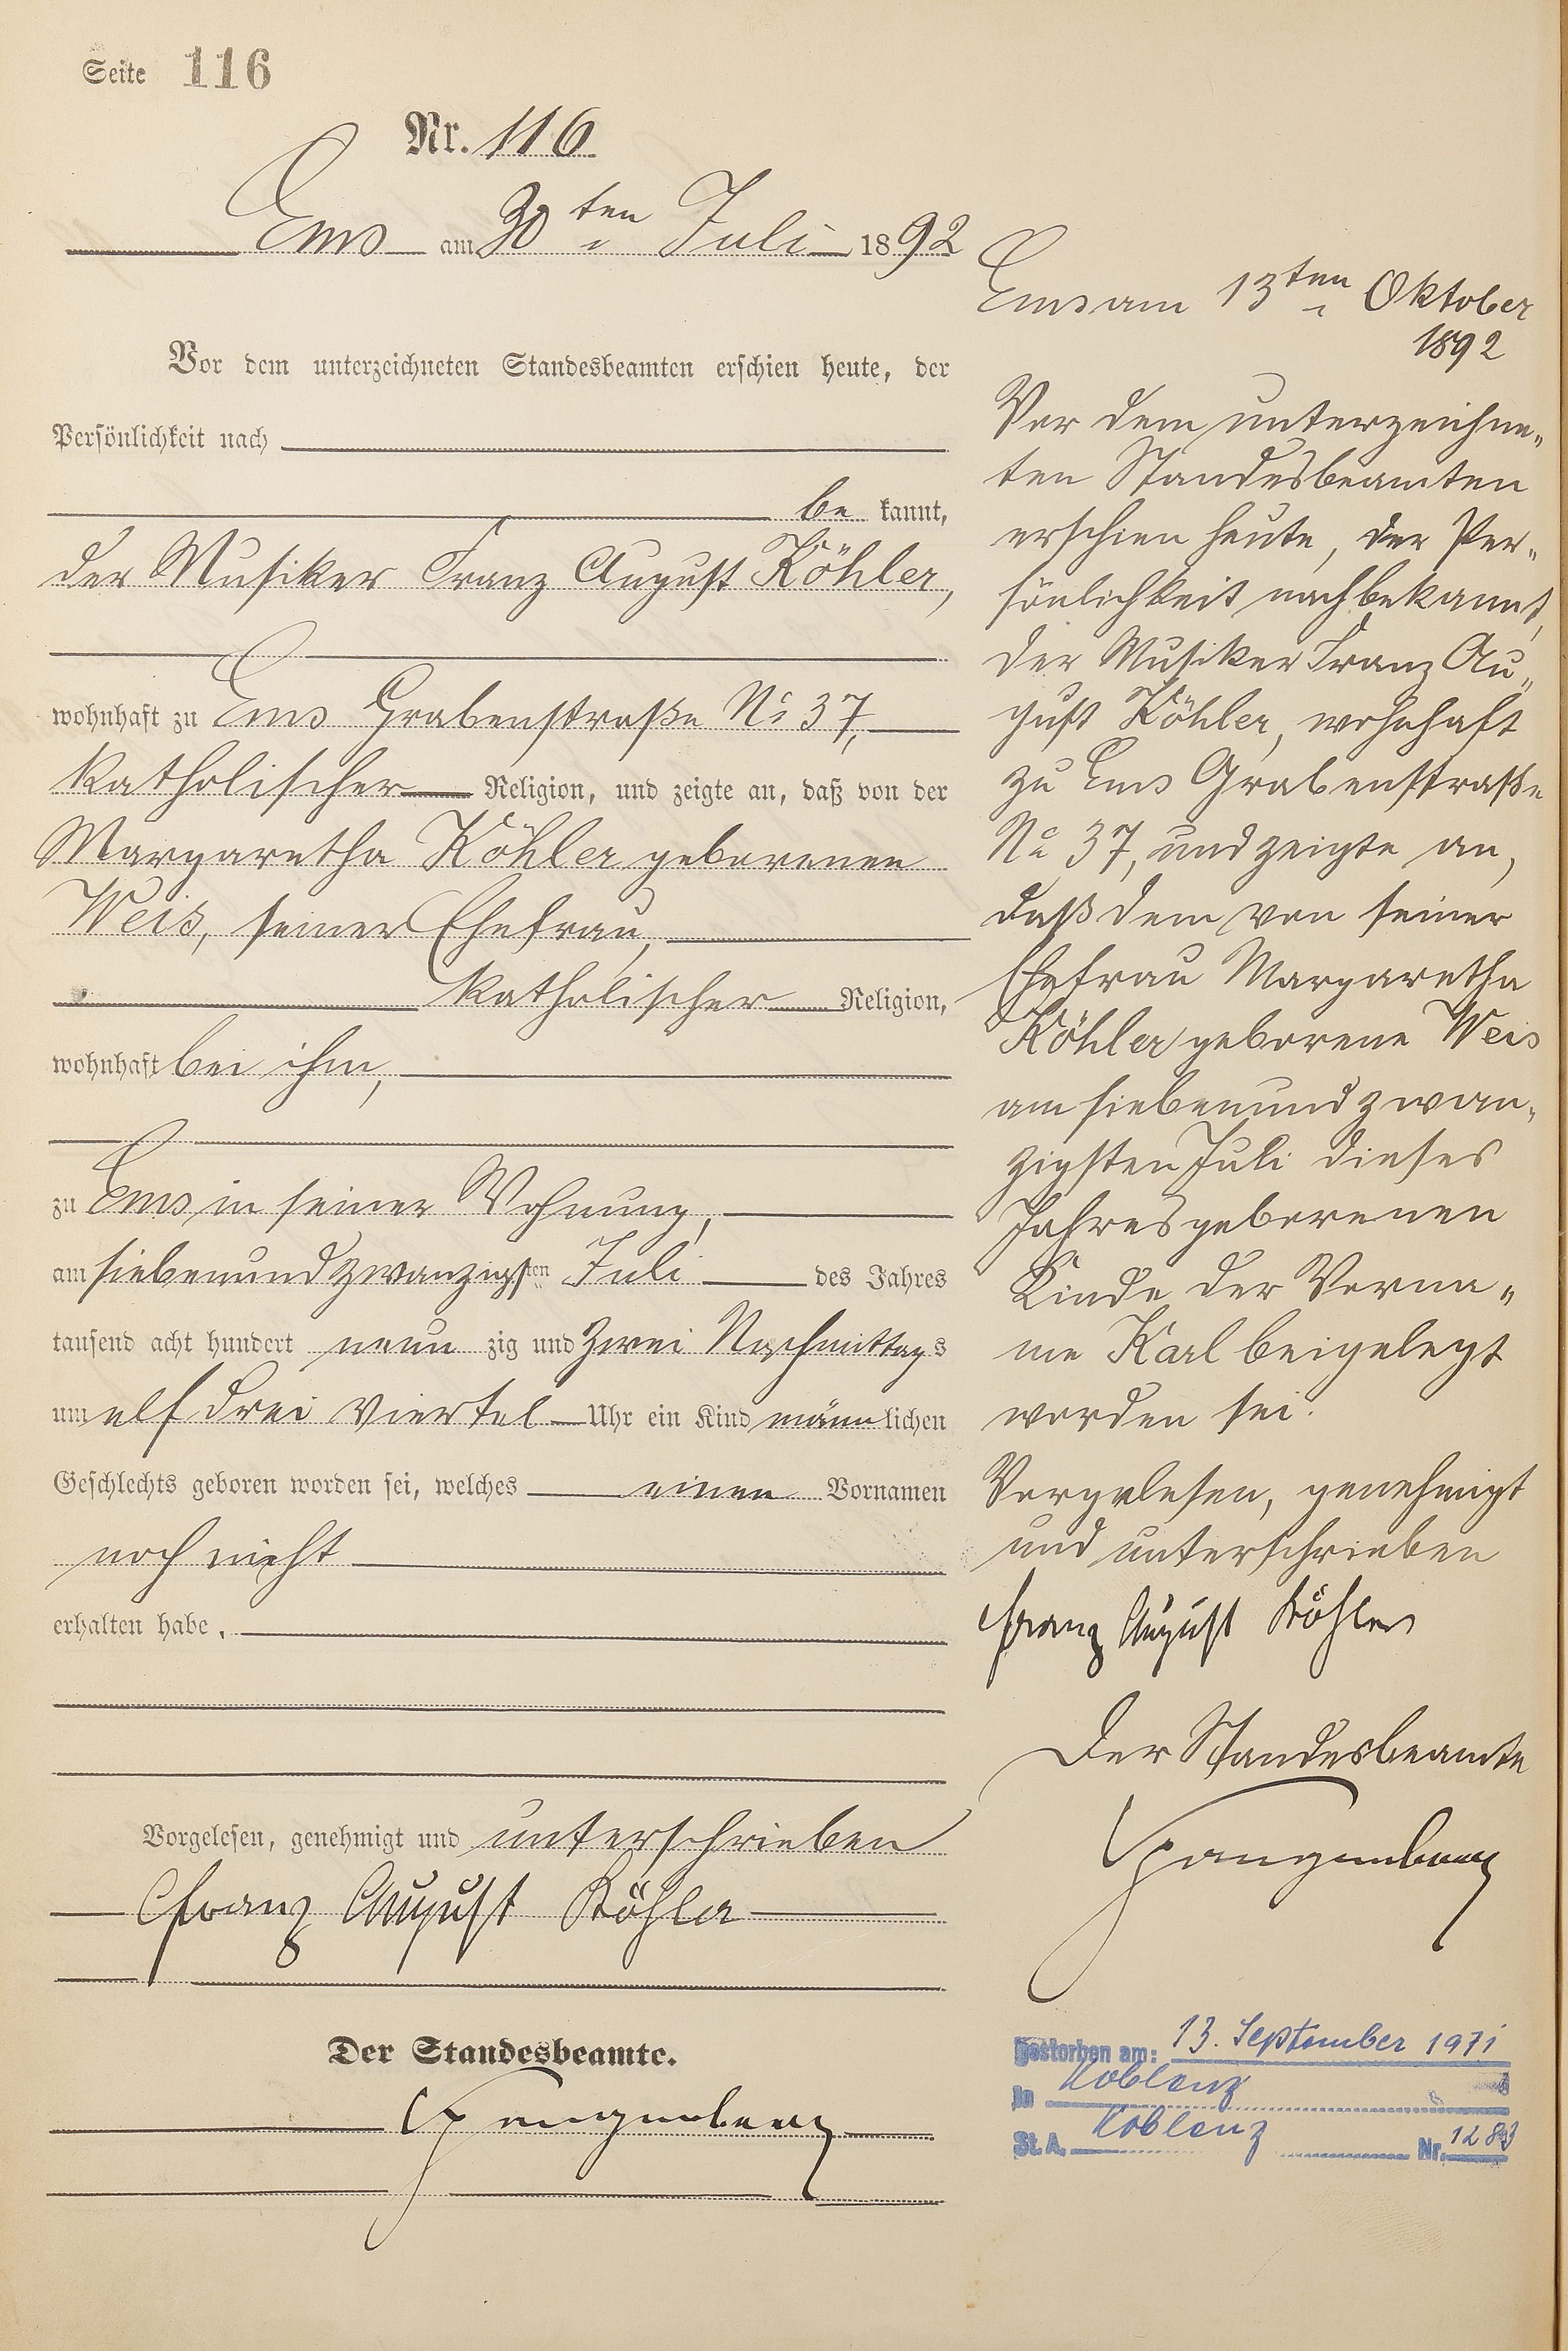 Seite 116
Nr. 116
Ems am 30ten Juli 1892
Vor dem unterzeichneten Standesbeamten erschien heute, der
Persönlichkeit nach
be kannt,
der Musiker Franz August Köhler,
wohnhaft zu Ems Grabenstraße No 37,
katholischer Religion, und zeigte an, daß von der
Margaretha Köhler geborenen
Weis, seiner Ehefrau,
katholischer Religion,
wohnhaft bei ihm,
zu Ems in seiner Wohnung,
am siebenundzwanzigsten Juli des Jahres
tausend acht hundert neun zig und zwei Nachmittags
um elf drei viertel Uhr ein Kind männlichen
Geschlechts geboren worden sei, welches einen Vornamen
noch nicht
erhalten habe.
Vorgelesen, genehmigt und unterschrieben
Franz August Köhler
Der Standesbeamte.
Ems am 13ten Oktober
1892
Vor dem unterzeichne„
ten Standesbeamten
erschien heute, der Per„
sönlichkeit nach bekannt,
der Musiker Franz Au„
gust Köhler, wohnhaft
zu Ems Grabenstraße
No 37, und zeigte an,
daß dem von seiner
Ehefrau Margaretha
Köhler geborene Weis
am siebenundzwan„
zigsten Juli dieses
Jahres geborenen
Kinde der Vorna„
me Karl beigelegt
worden sei.
Vorgelesen, genehmigt
und unterschrieben
Franz August Köhler
Der Standesbeamte
Gestorben am: 13. September 1971
In Koblenz
St. A. Koblenz Nr. 1283